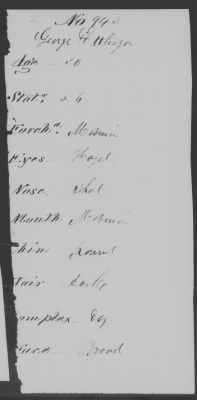 No 943
George E
Age 20
Stat. 5.6
Foreh'd. Medium
Eyes Hazel
Nose
Mouth Medium
Chin Round
Hair Dark
Complex.
Face Broad